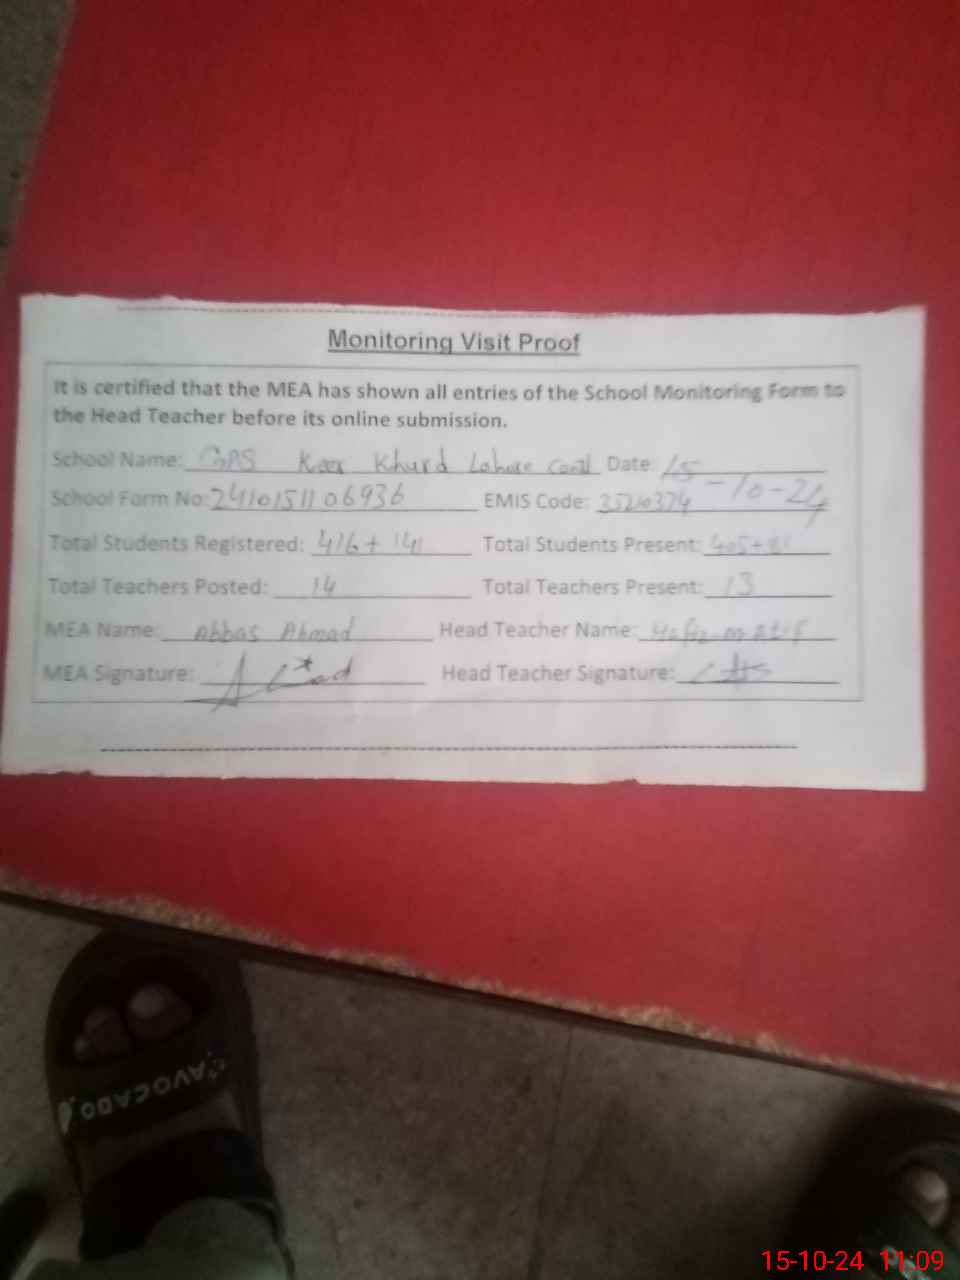 Monitoring Visit Proof
It is certified that the MEA has shown all entries of the School Monitoring Form to
the Head Teacher before its online submission.
School Name: GPS Keer Khurd Lahore Cantt Date: 15-10-24
School Form No: 2410151106936 EMIS Code: 35210374
Total Students Registered: 416 + 141 Total Students Present: 405+
Total Teachers Posted: 14 Total Teachers Present: 13
MEA Name: Abbas Ahmad Head Teacher Name: Hafiz M Atif
MEA Signature: Head Teacher Signature:
AVOCADO
15-10-24 11:09